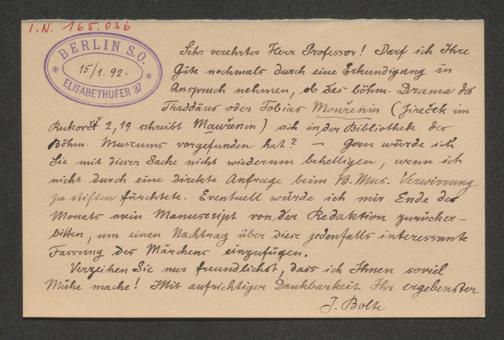 I.N. 165.036
BERLIN S.O.
15/1. 92.
ELISABETHUFER 37
Sehr verehrter Herr Professor! Darf ich Ihre
Güte nochmals durch eine Erkundigung in
Anspruch nehmen, ob das böhm. Drama des
Thaddäus oder Tobias Mouřenin (Jireček im
Rukověť 2, 19 schreibt Mouřenin) sich in der Bibliothek des
Böhm. Museums vorgefunden hat? — Gern würde ich
Sie mit dieser Sache nicht wiederum behelligen, wenn ich
nicht durch eine direkte Anfrage beim B. Mus. Verwirrung
zu stiften fürchtete. Eventuell würde ich mir Ende des
Monats mein Manuscript von der Redaktion zurücker-
bitten, um einen Nachtrag über diese jedenfalls interessante
Fassung des Märchens einzufügen.
Verzeihen Sie nur freundlichst, dass ich Ihnen soviel
Mühe mache! Mit aufrichtiger Dankbarkeit Ihr ergebenster
J. Bolte